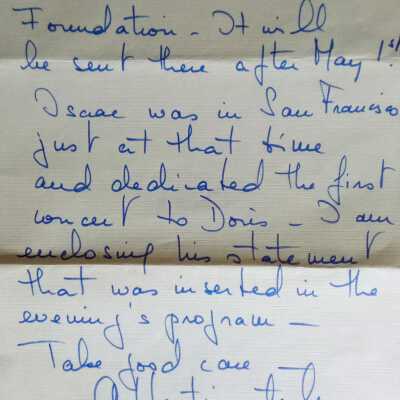 Foundation - It will
be sent there after May 1st
Isaac was in San Francisco
just at that time
and dedicated the first
concert to Doris - I am
enclosing his statement
that was inserted in the
evening's program -
Take good care
Affectionately